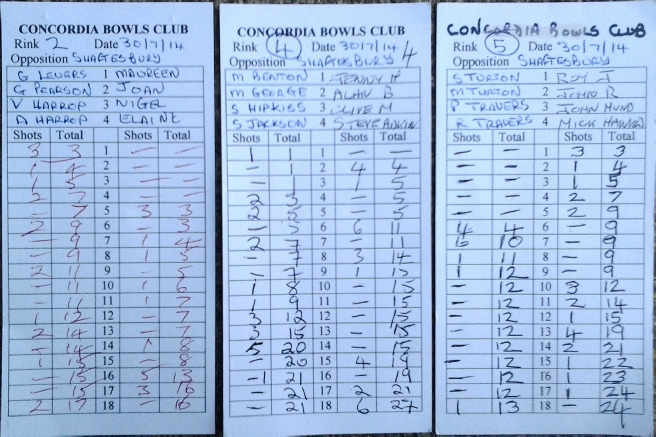 CONCORDIA BOWLS CLUB
Rink 2 Date 30/7/14
Opposition SHAFTESBURY
G LEVERS 1 MAUREEN
G PEARSON 2 JOAN
V HARROP 3 NIGEL
A HARROP 4 ELAINE
Shots Total Shots Total
3 3 1 – –
1 4 2 – –
1 5 3 – –
2 7 4 – –
– 7 5 3 3
2 9 6 – 3
– 9 7 1 4
– 9 8 1 5
2 11 9 – 5
– 11 10 1 6
– 11 11 1 7
1 12 12 – 7
2 14 13 – 7
– 14 14 1 8
1 15 15 – 8
– 15 16 5 13
– 15 17 3 16
2 17 18 – 16
CONCORDIA BOWLS CLUB
Rink 4 Date 30/7/14 4
Opposition SHAFTESBURY
M BENTON 1 JENNY H
M GEORGE 2 ALAN B
S HIPKISS 3 CLIVE M
S JACKSON 4 STEVE
Shots Total Shots Total
1 1 1 – –
– 1 2 4 4
– 1 3 1 5
2 3 4 – 5
2 5 5 – 5
– 5 6 6 11
2 7 7 – 11
– 7 8 3 14
– 7 9 1 15
1 8 10 – 15
1 9 11 – 15
3 12 12 – 15
3 15 13 – 15
5 20 14 – 15
– 20 15 4 19
1 21 16 – 19
– 21 17 2 21
– 21 18 6 27
CONCORDIA BOWLS CLUB
Rink 5 Date 30/7/14
Opposition SHAFTESBURY
S TURTON 1 ROY J
M TURTON 2 JOHN R
P TRAVERS 3 JOHN MUND
R TRAVERS 4 MICK
Shots Total Shots Total
– – 1 3 3
– – 2 1 4
– – 3 1 5
– – 4 2 7
– – 5 2 9
4 4 6 – 9
6 10 7 – 9
1 11 8 – 9
1 12 9 – 9
– 12 10 3 12
– 12 11 2 14
– 12 12 1 15
– 12 13 4 19
– 12 14 2 21
– 12 15 1 22
– 12 16 1 23
– 12 17 1 24
1 13 18 – 24